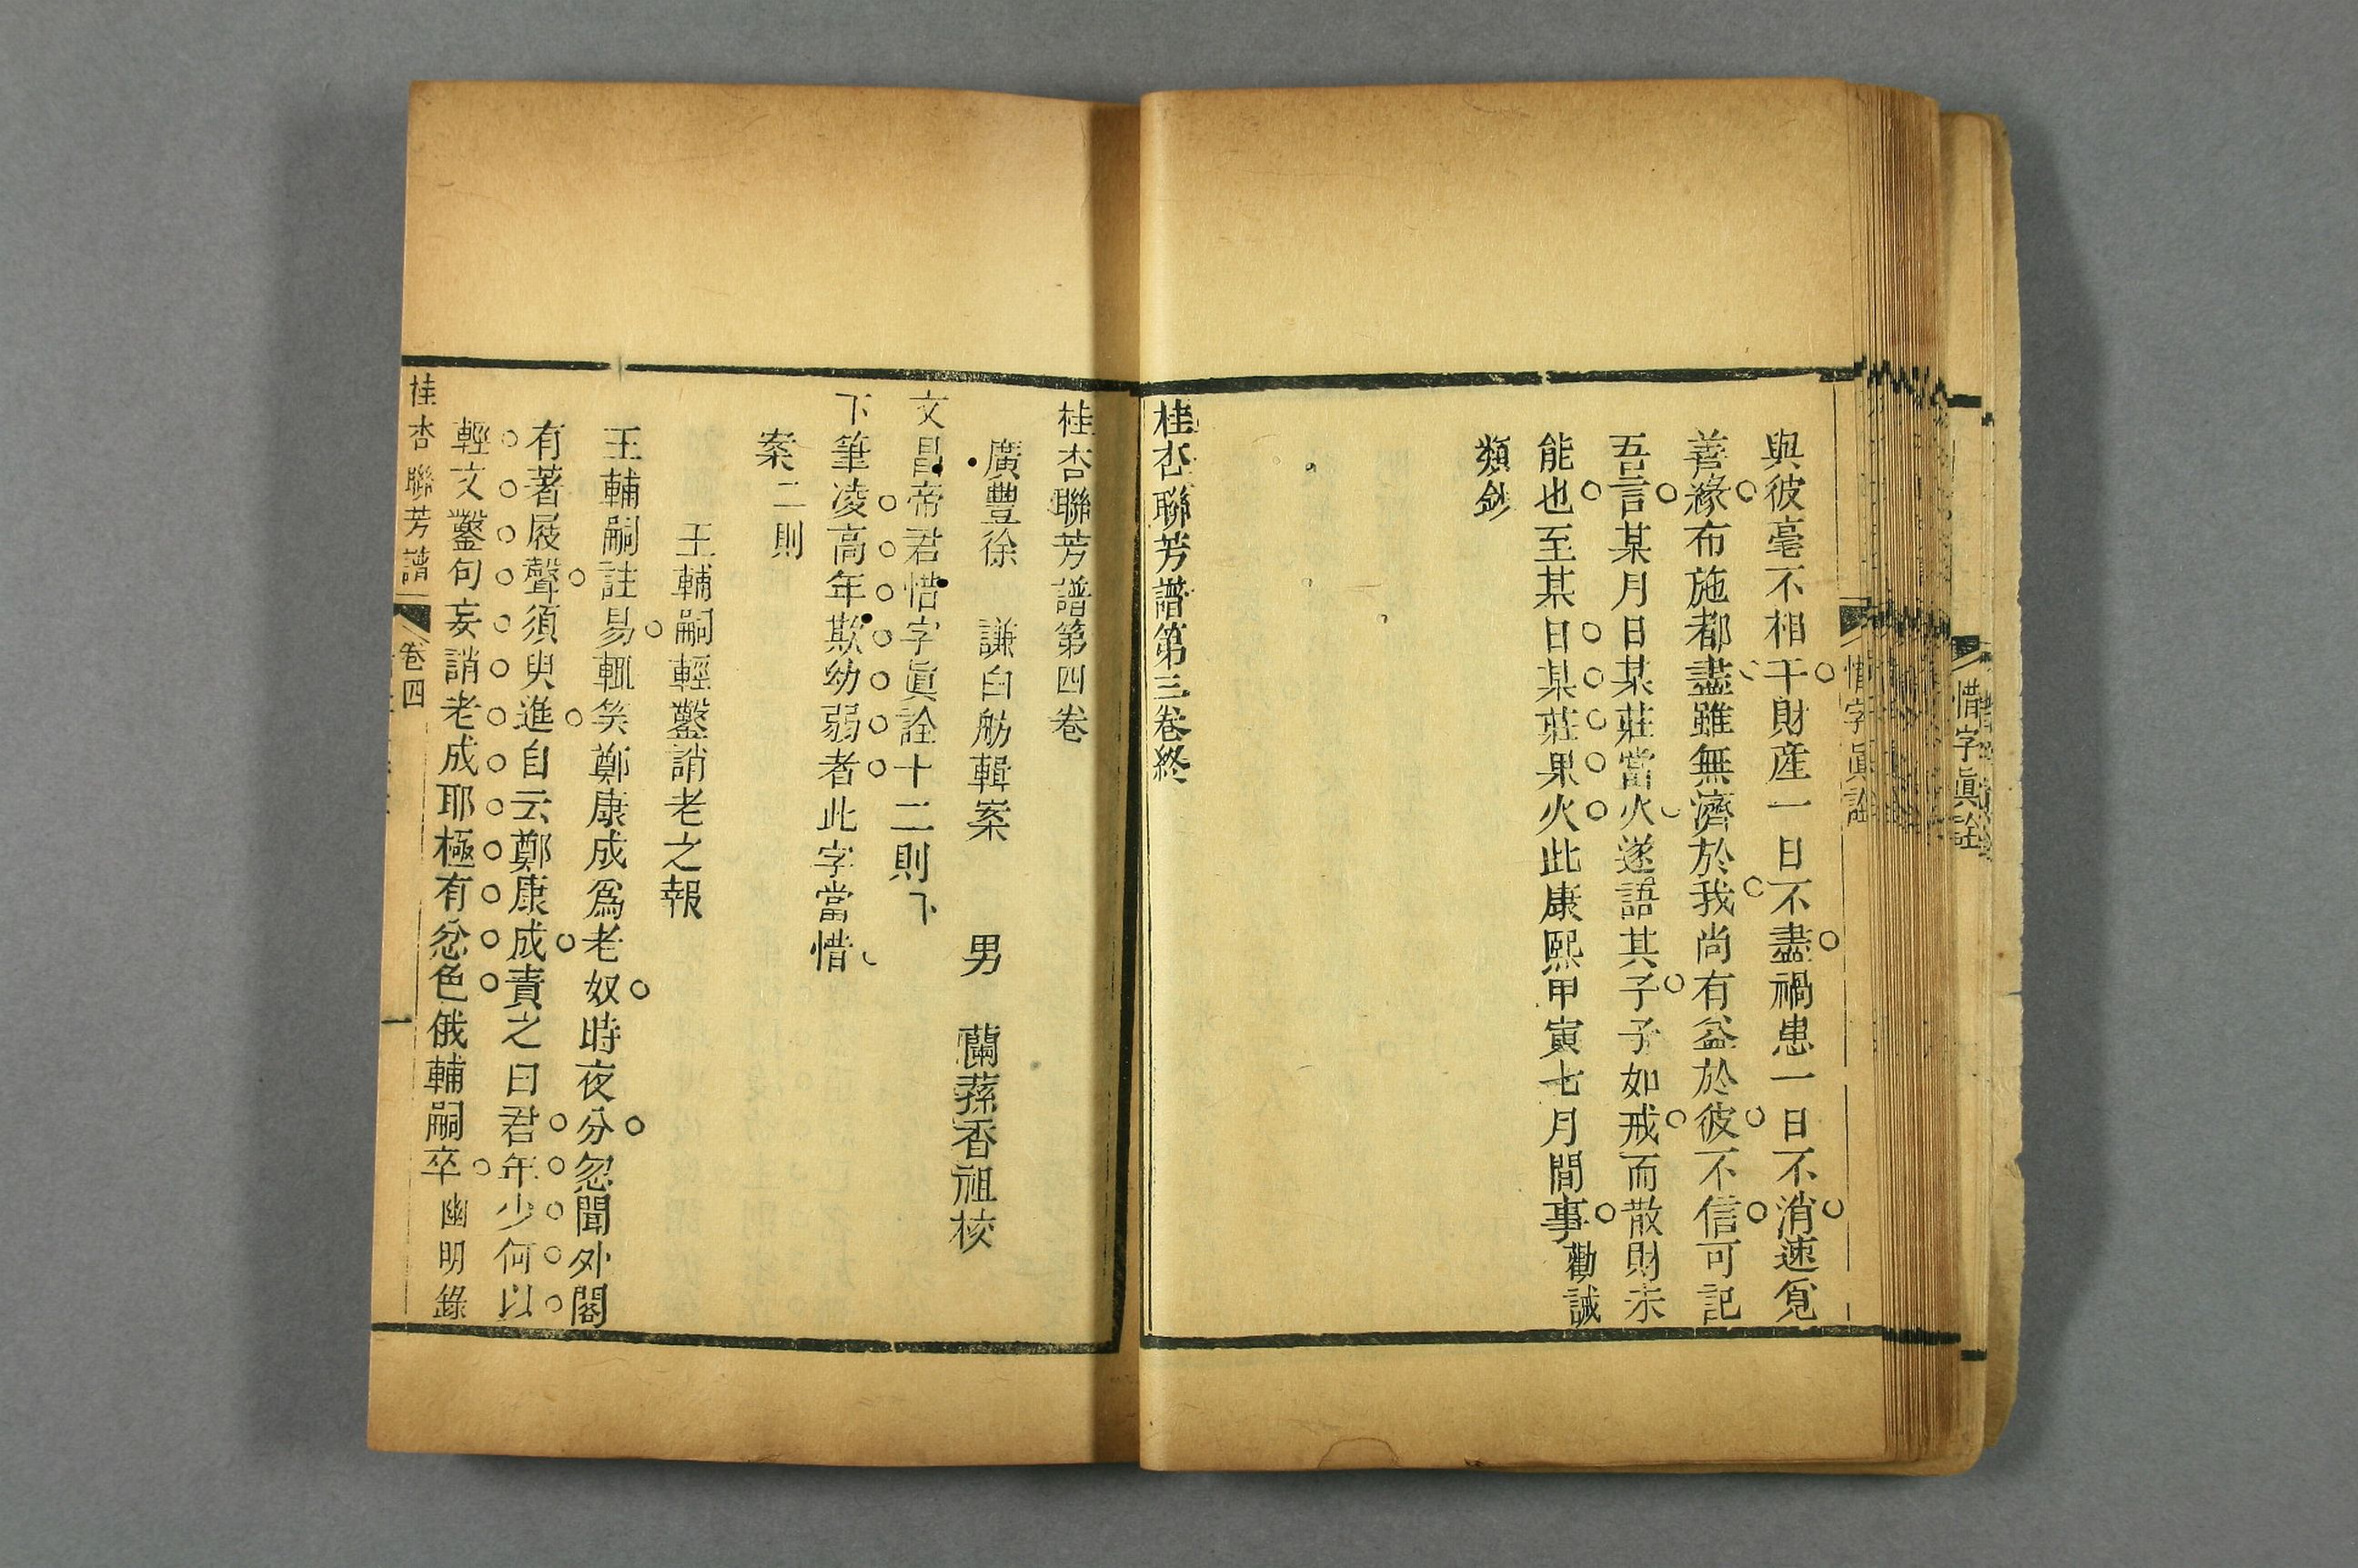 惜字眞詮
惜字眞詮
與彼毫不相干財産一日不盡禍患一日不消速覓
善緣布施都盡雖無濟於我尚有益於彼不信可記
吾言某月日某莊當火遂語其子子如戒而散財未
能也至某日某莊果火此康熙甲寅七月間事勸誡
類鈔
桂杏聯芳譜第三卷終
桂杏聯芳譜第四卷
廣豐徐 謙白舫輯案 男 蘭蓀香祖校
文昌帝君惜字眞詮十二則下
下筆凌高年欺幼弱者此字當惜
案二則
王輔嗣輕鑿誚老之報
王輔嗣註易輒笑鄭康成爲老奴時夜分忽聞外閣
有著屐聲須臾進自云鄭康成責之曰君年少何以
輕文鑿句妄誚老成耶極有忿色俄輔嗣卒幽明錄
桂杏聯芳譜 卷四 一